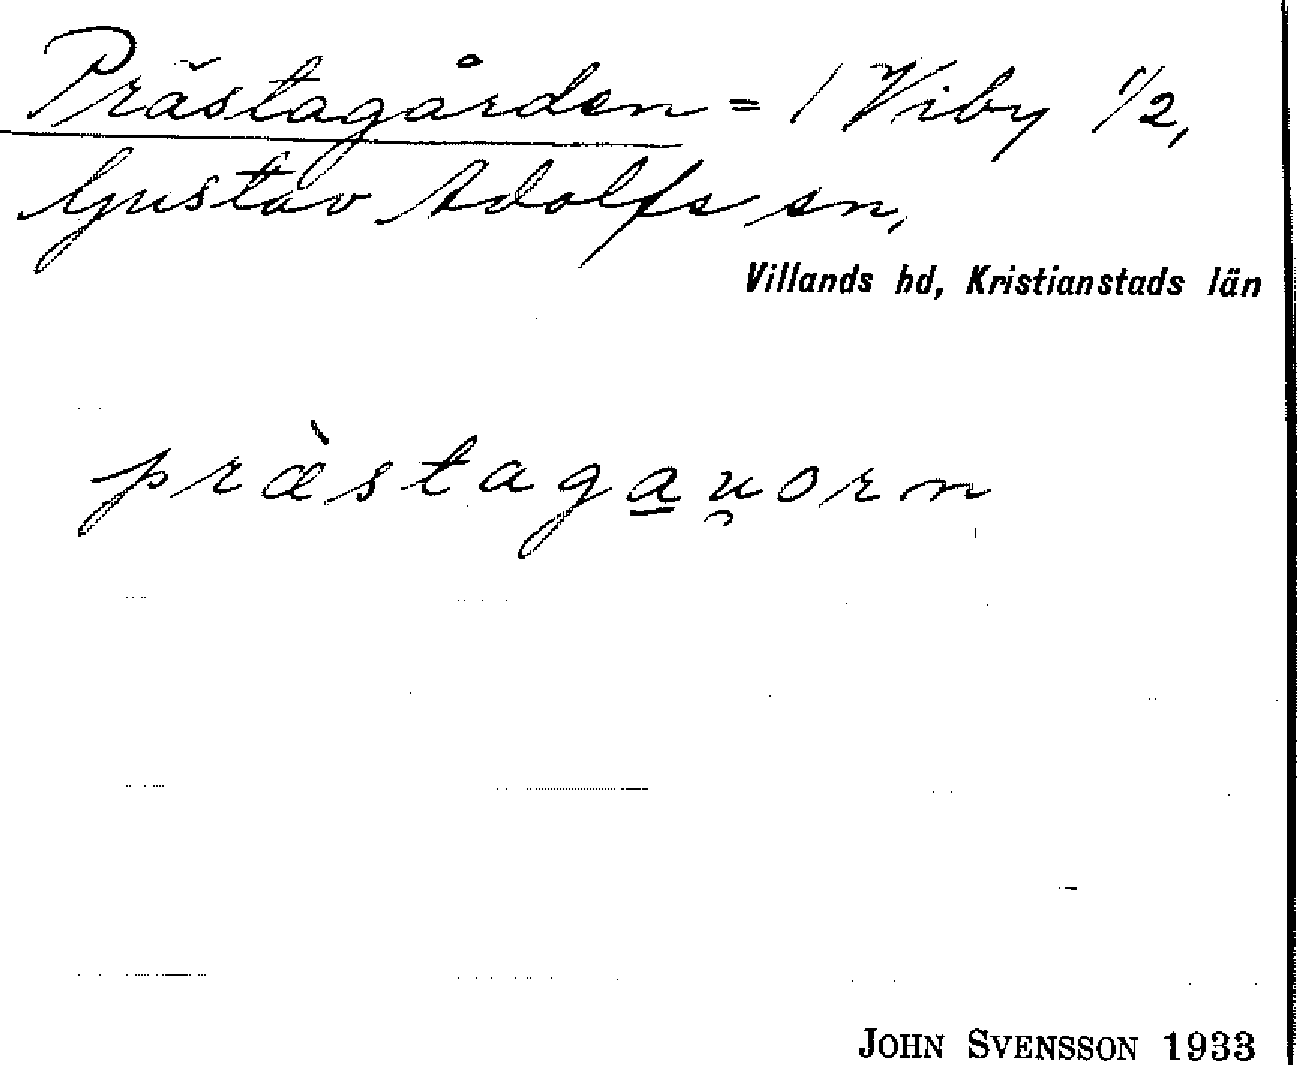 Prästagården = 1 Viby 1/2,
Gustav Adolfs sn,
Villands hd, Kristianstads län
præ̀staga̲u̯orn
JOHN SVENSSON 1933